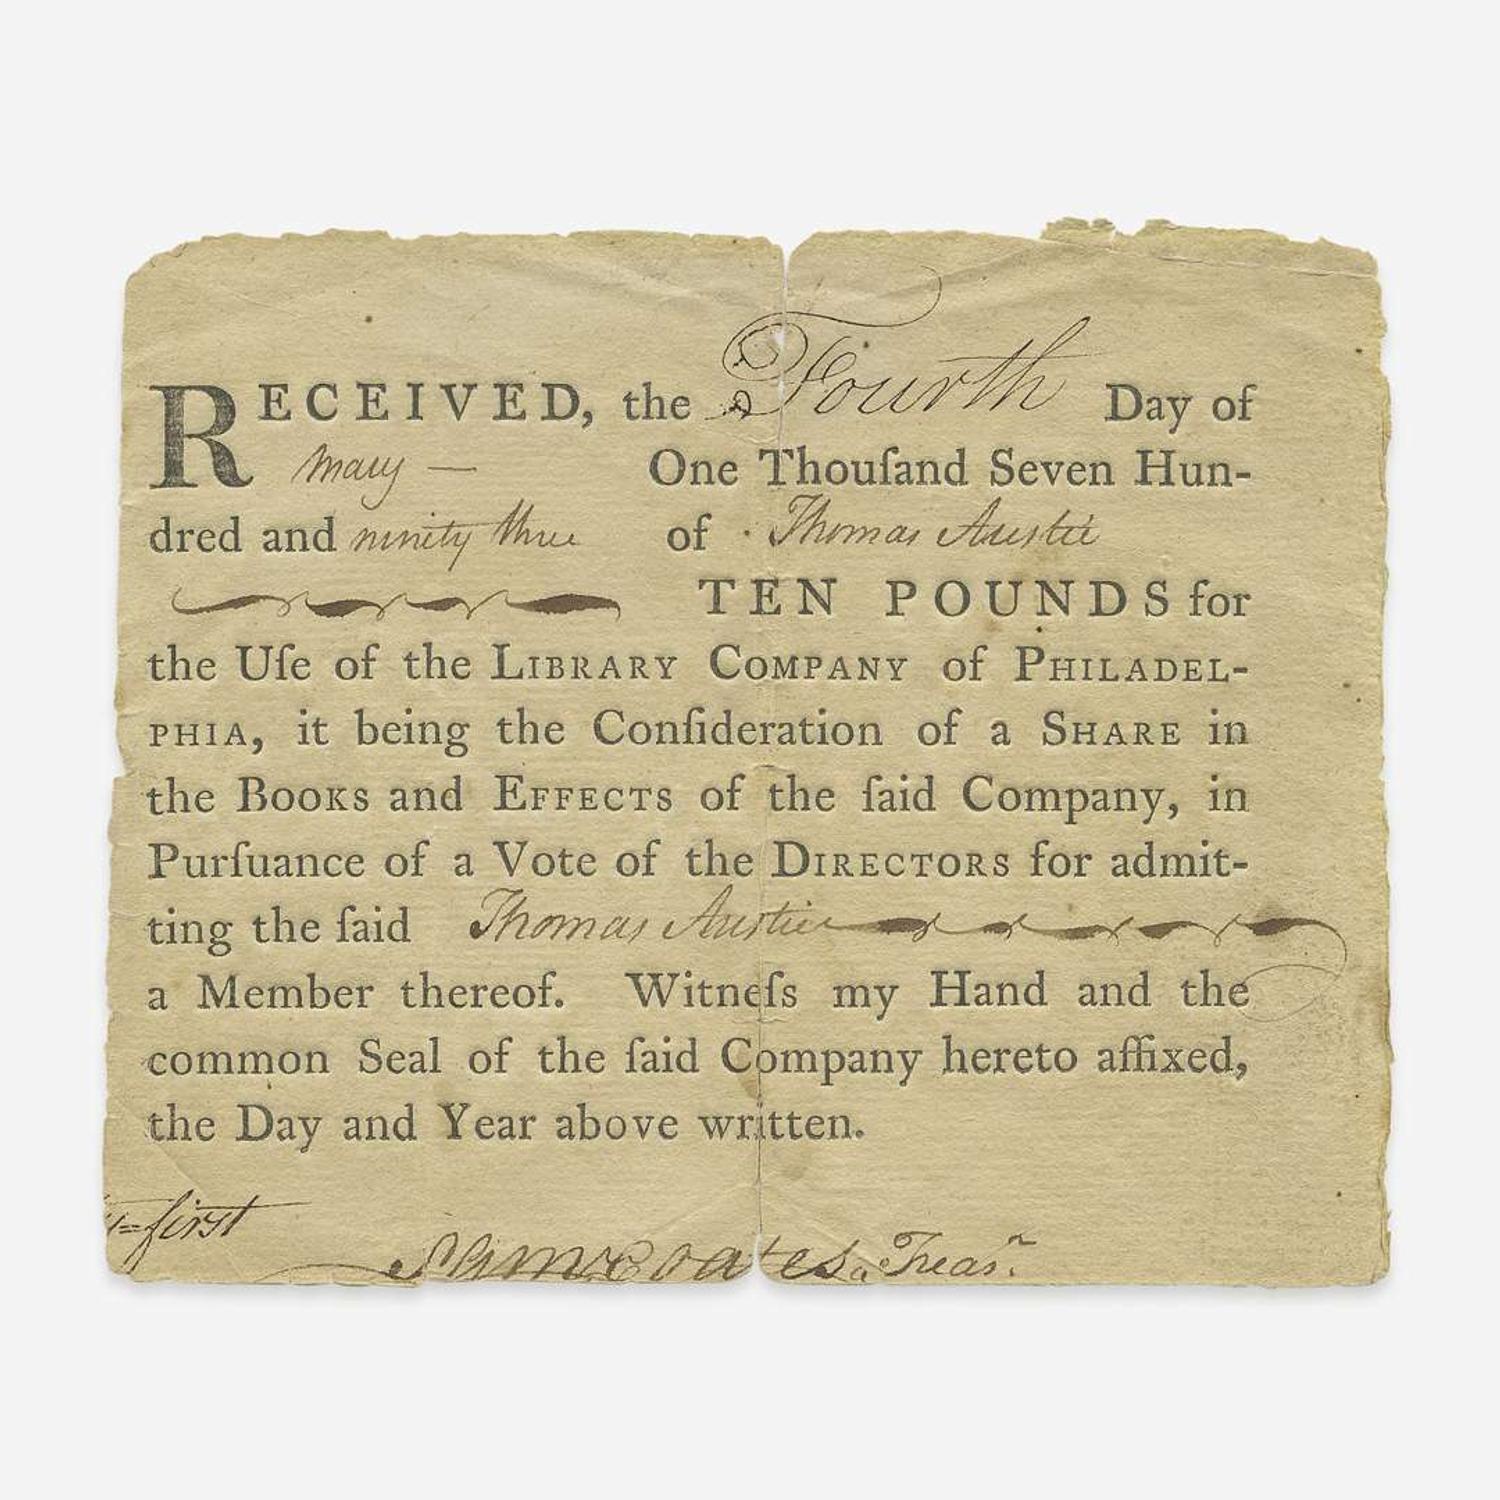 RECEIVED, the Fourth Day of
May — One Thouſand Seven Hun-
dred and ninity three of Thomas Austin
TEN POUNDS for
the Uſe of the LIBRARY COMPANY of PHILADEL-
PHIA, it being the Conſideration of a SHARE in
the Books and EFFECTS of the ſaid Company, in
Purſuance of a Vote of the DIRECTORS for admit-
ting the ſaid Thomas Austin
a Member thereof. Witneſs my Hand and the
common Seal of the ſaid Company hereto affixed,
the Day and Year above written.
=first
Sam Coates, Treasr.